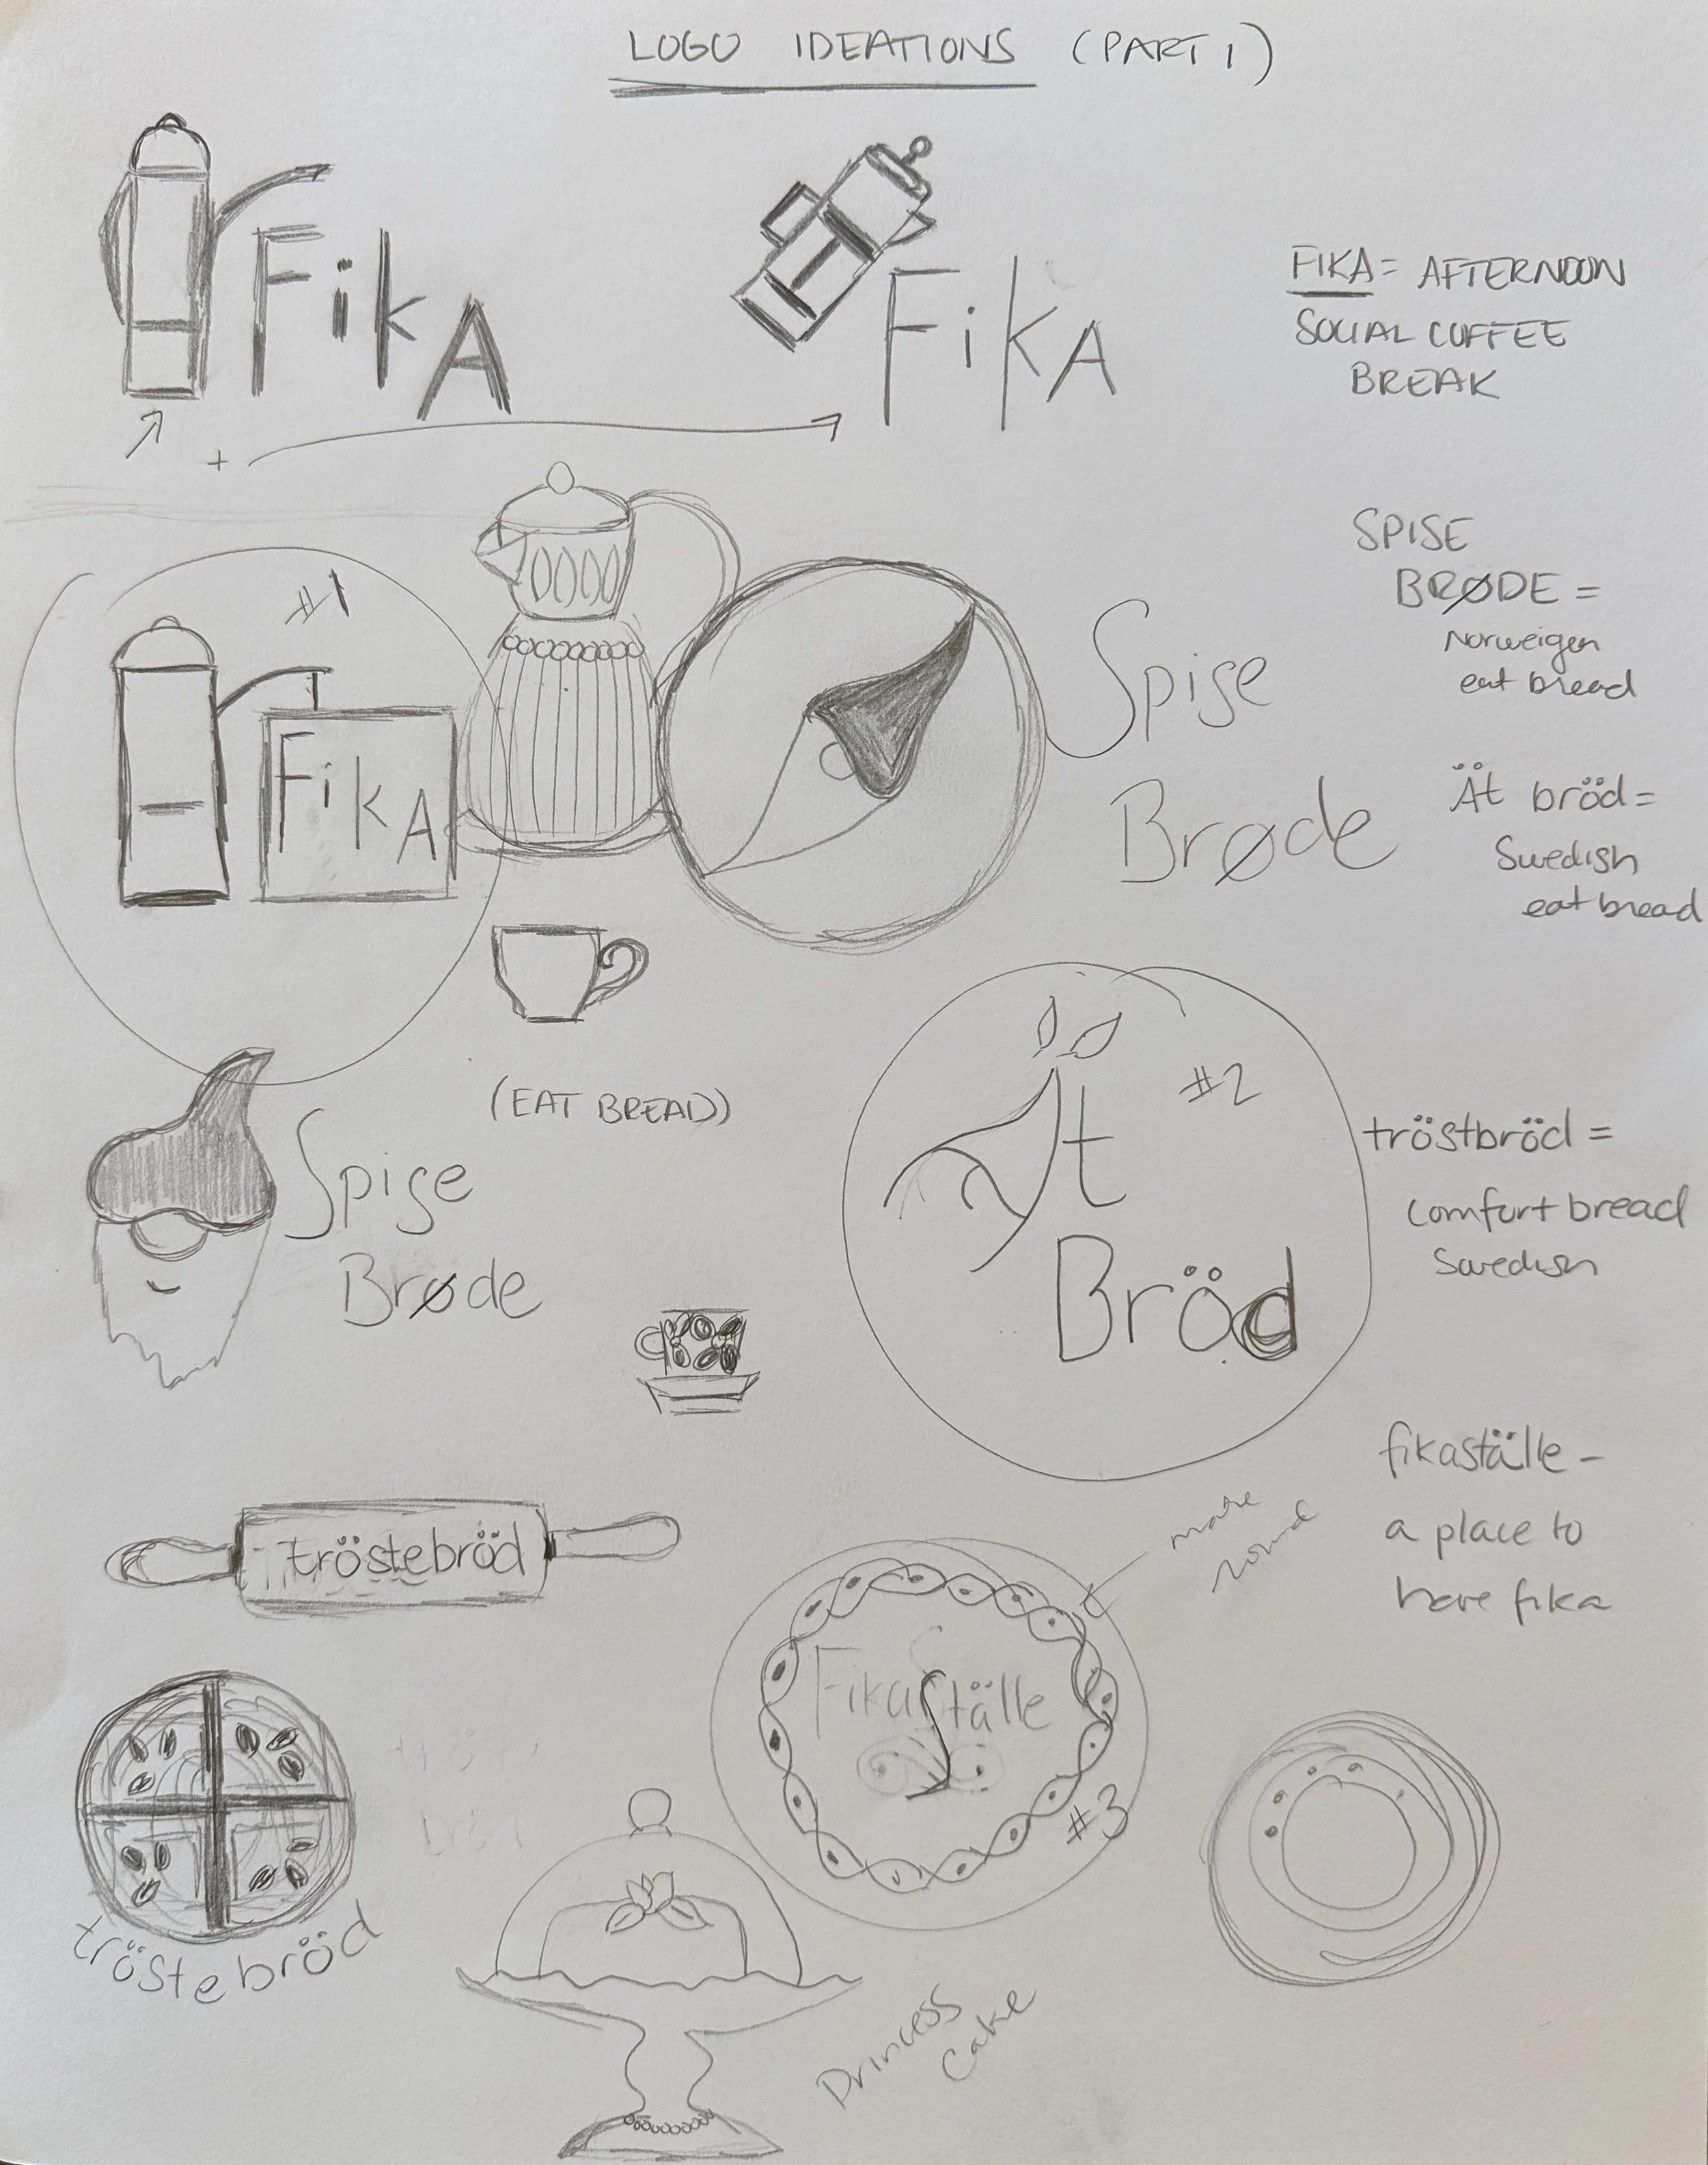 LOGO IDEATIONS (PART 1)
FikA
FikA
FIKA = AFTERNOON
SOCIAL COFFEE
BREAK
+
#1
FikA
Spise
Brøde
SPISE
BRØDE =
Norweigen
eat bread
Ät bröd =
Swedish
eat bread
(EAT BREAD)
Spise
Brøde
#2
Ät
Bröd
tröstbröd =
comfort bread
Swedish
fikaställe -
a place to
have fika
tröstebröd
more
round
FikaStälle
#3
tröstebröd
Princess
Cake